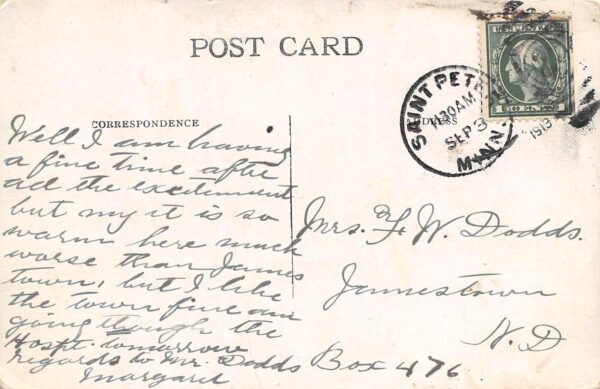 POST CARD
SAINT PETER
11 30 AM
SEP 3
1913
MINN.
1 CENT 1
CORRESPONDENCE
ADDRESS
Well I am having
a fine time after
all the excitement
but my it is so
warm here much
worse than James
town, but I like
the town fine am
going through the
Hospt. tomorrow
regards to Mr. Dodds
Margaret
Mrs. F. W. Dodds.
Jamestown
N. D
Box 476